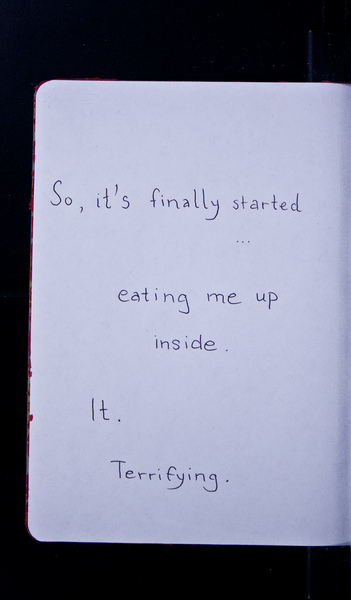 So, it's finally started
...
eating me up
inside.
It.
Terrifying.